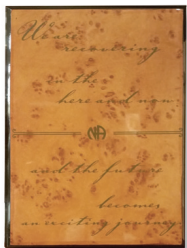 We are
recovering
in the
here and now
NA
and the future
becomes
an exciting journey